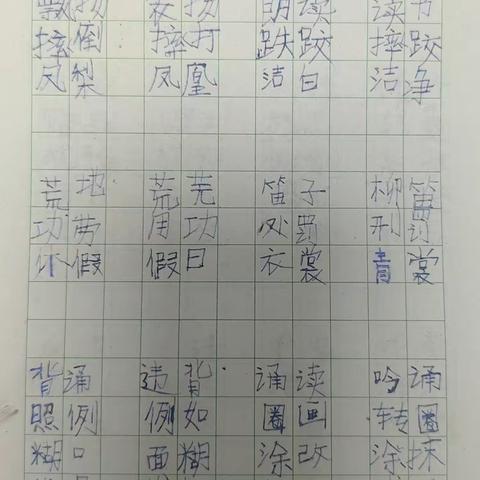 飘扬 发扬 朗读 读书
摔倒 摔打 跌跤 摔跤
凤梨 凤凰 洁白 洁净
荒地 荒芜 笛子 柳笛
功劳 用功 处罚 刑罚
休假 假日 衣裳 青裳
背诵 违背 诵读 吟诵
照例 例如 圈画 转圈
糊口 面糊 涂改 涂抹